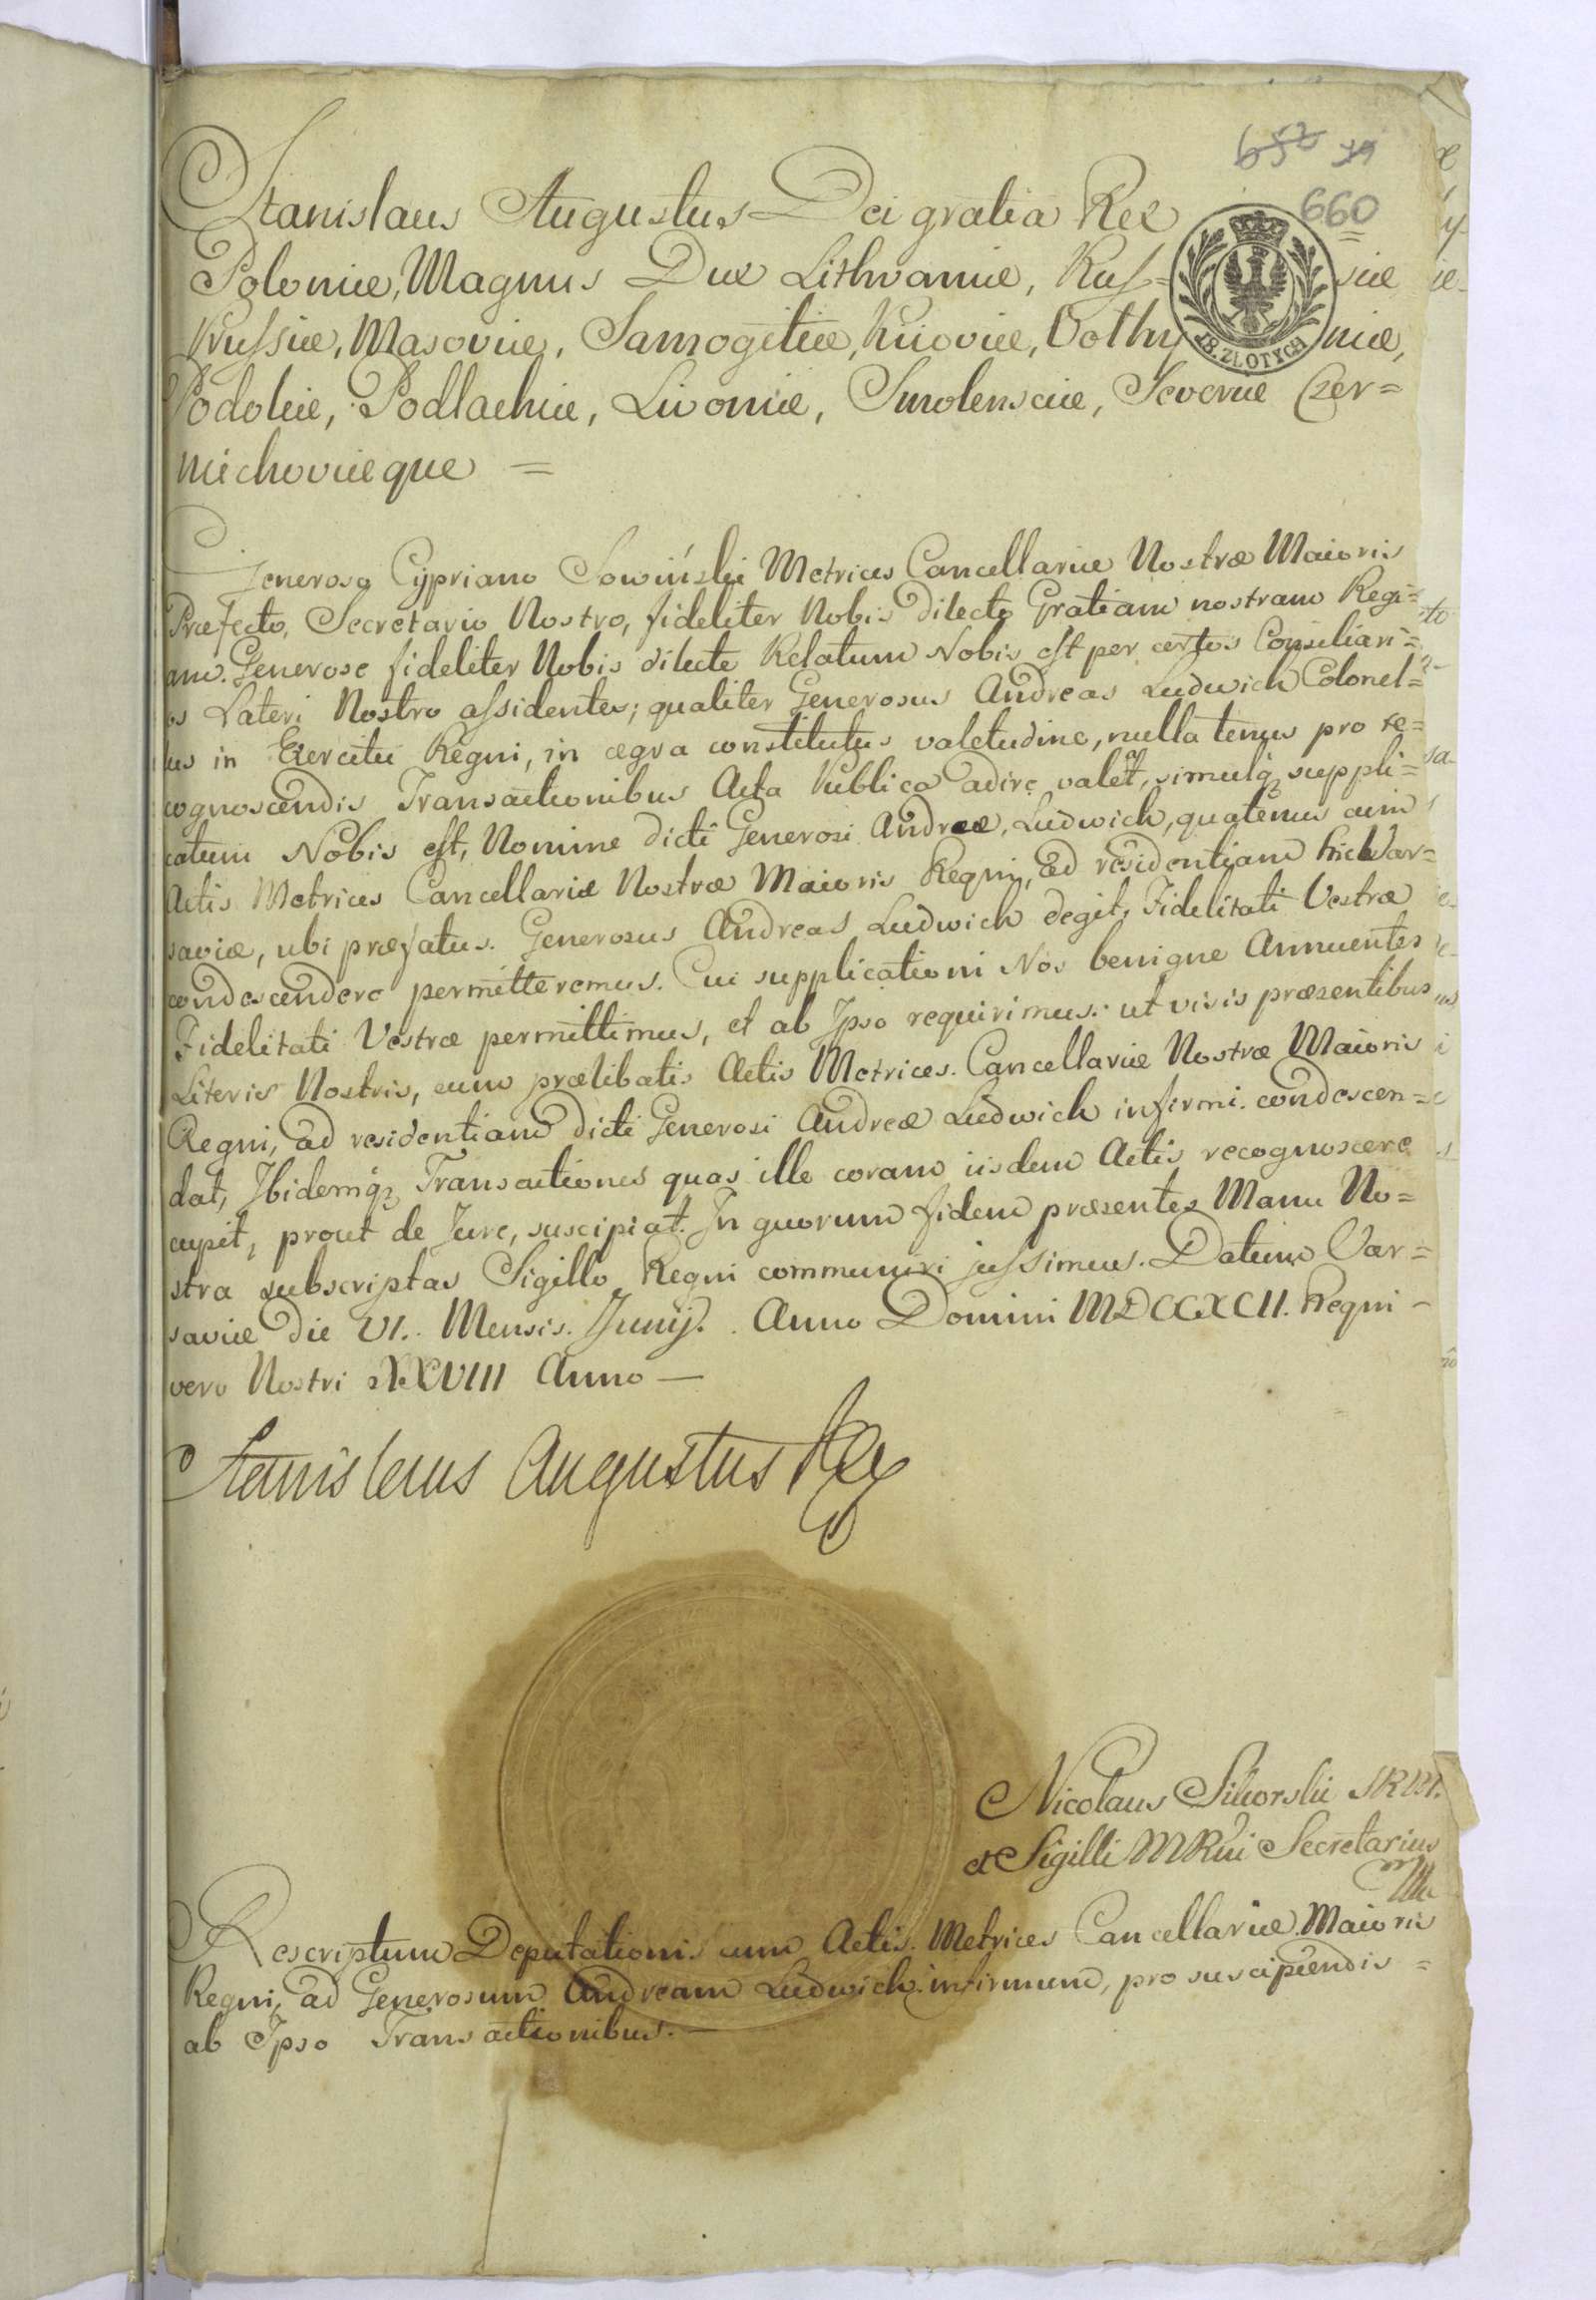 652 39
660
Stanislaus Augustus Dei gratia Rex
Poloniæ, Magnus Dux Lithvaniæ, Rus= siæ
18. ZŁOTYCH
Prussiæ, Masoviæ, Samogitiæ, Kijoviæ, Volhy niæ,
Podoliæ, Podlachiæ, Livoniæ, Smolensciæ, Severiæ Czer=
niechoviæque =
Generoso Cypriano Sowiński Metrices Cancellariæ Nostræ Maioris
Præfecto, Secretario Nostro, fideliter Nobis Dilecto Gratiam nostram Regi=
am. Generose fideliter Nobis dilecte Relatum Nobis est per certos Consiliari=
os Lateri Nostro assidentes; qualiter Generosus Andreas Ludwich Colonel=
lus in Exercitu Regni, in ægra constitutus valetudine, nulla tenus pro re=
cognoscendis Transactionibus Acta Publica adire valeat, simulq3 suppli=
catum Nobis est, Nomine dicti Generosi Andreæ, Ludwich, quatenus cum
Actis Metrices Cancellariæ Nostræ Maioris Regni, ad residentiam hic Var=
saviæ, ubi præfatus. Generosus Andreas Ludwich degit, Fidelitati Vestræ
condescendere permitteremus. Cui supplicationi Nos benigne Annuentes
Fidelitati Vestræ permittimus, et ab Ipso requirimus: ut visis præsentibus
Literis Nostris, cum prælibatis Actis Metrices. Cancellariæ Nostræ Maioris
Regni, ad residentiam dicti Generosi Andreæ Ludwich infirmi. condescen=
dat, Ibidemq3 Transactiones quas ille coram iisdem Actis recognoscere
cupit, prout de Jure, suscipiat. In quorum fidem præsentes Manu No=
stra subscriptas Sigillo Regni communiri jussimus. Datum Var=
saviæ Die VI. Mensis. Junij. Anno Domini MDCCXCII. Regni
vero Nostri XXVIII Anno —
Stanislaus Augustus Rex
Nicolaus Sikorski SRM.
et Sigilli MRni Secretarius
Rescriptum Deputationis cum Actis. Metrices Cancellariæ Maioris
Regni, ad Generosum Andream Ludwich infirmum, pro suscipiendis =
ab Ipso Transactionibus. —